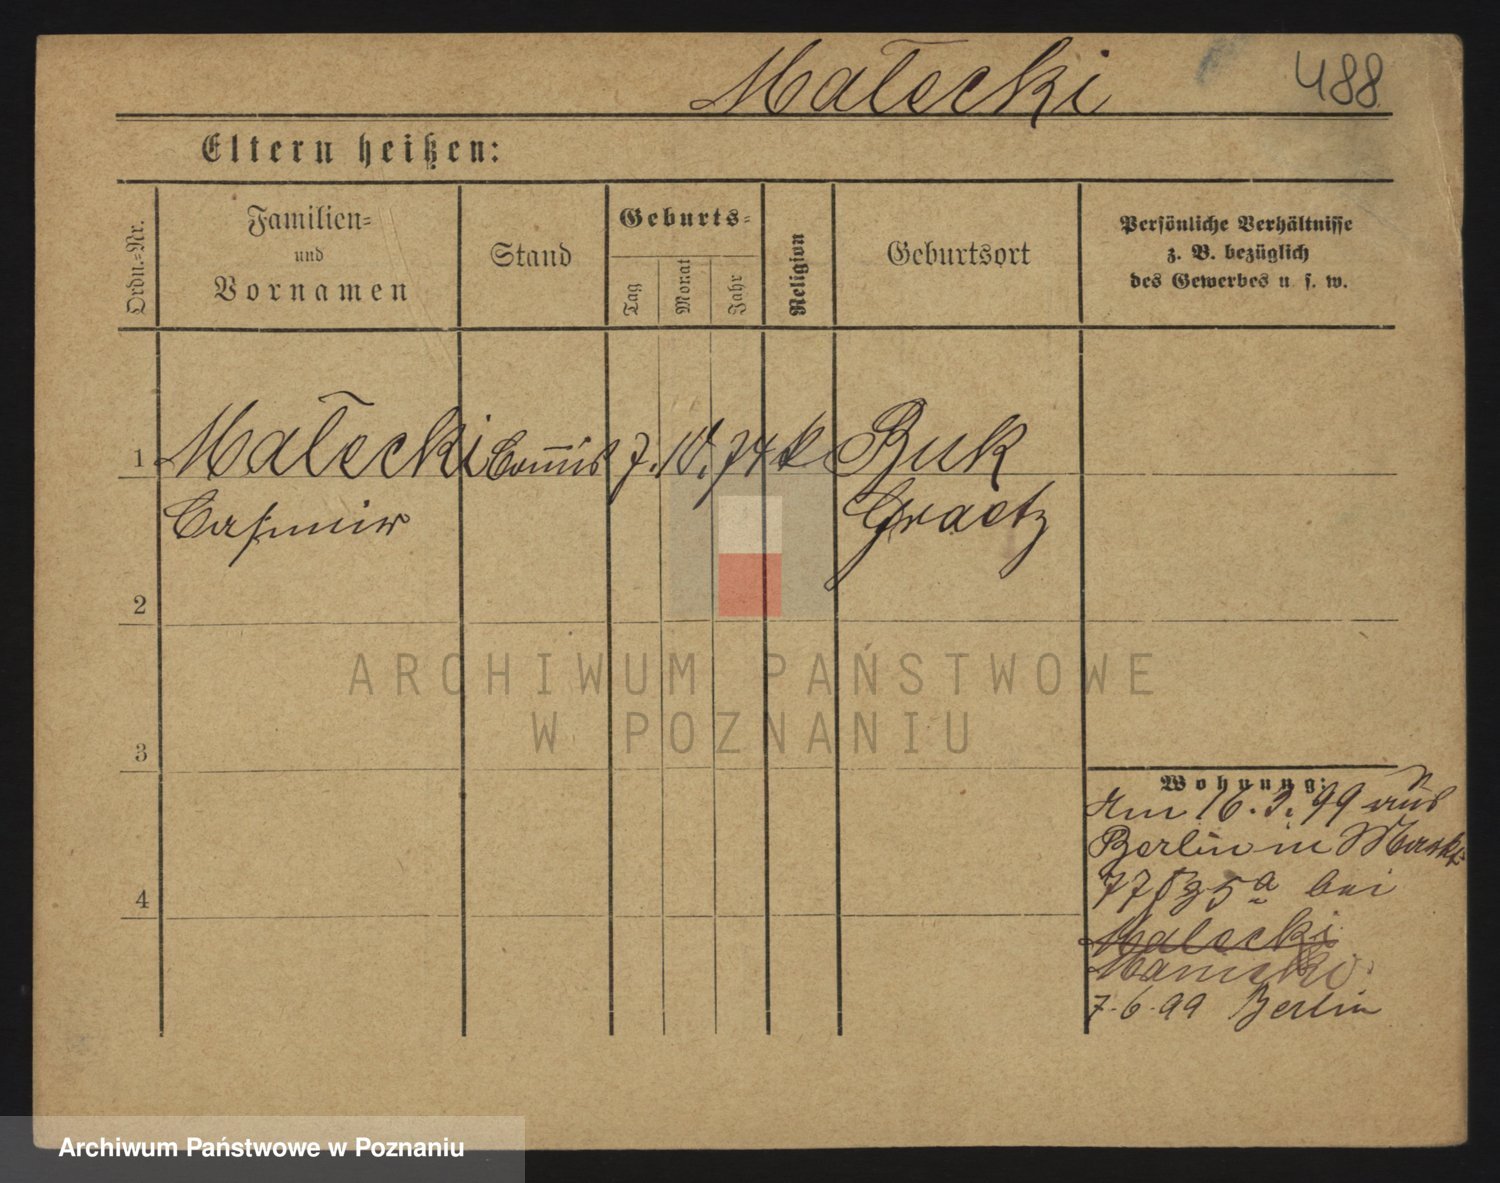 Małecki 488
Eltern heißen:
Ordn.-Nr.
Familien-
und
Vornamen
Stand
Geburts-
Tag
Monat
Jahr
Religion
Geburtsort
Persönliche Verhältnisse
z. B. bezüglich
des Gewerbes u. s. w.
1 Małecki Commis 7. 10. 74 k Buk
Casimir Graetz
2
ARCHIWUM PAŃSTWOWE
W POZNANIU
3
Wohnung:
Am 16. 3. 99 aus
Berlin in
77 bei
Małecki
7.6.99 Berlin
4
Archiwum Państwowe w Poznaniu